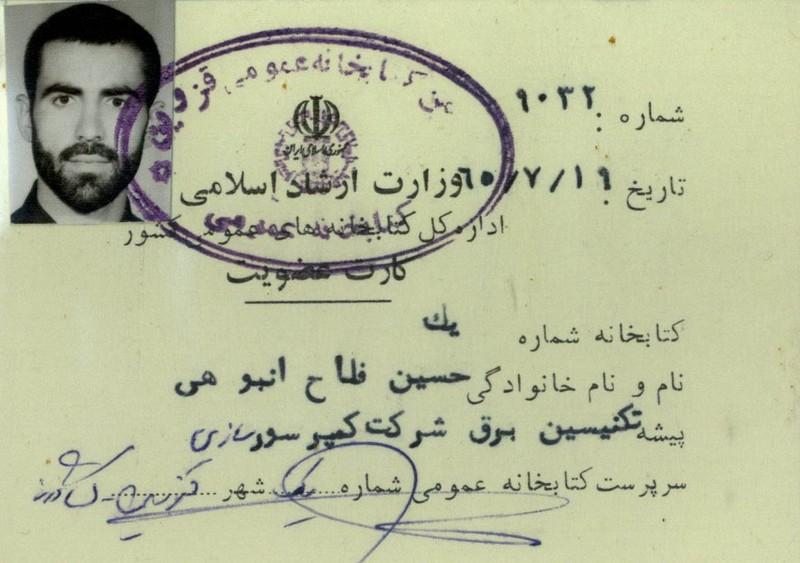 شماره : ۹۰۳۲
تاریخ : ۶۰/۷/۱۹
کتابخانه عمومی قزوین
جمهوری اسلامی ایران
وزارت ارشاد اسلامی
اداره کل کتابخانه‌های عمومی کشور
کارت عضویت
کتابخانه شماره یك
نام و نام خانوادگی حسین فلاح انبوهی
پیشه تکنیسین برق شرکت کمپرسورسازی
سرپرست کتابخانه عمومی شماره ... یك ... شهر ... قزوین